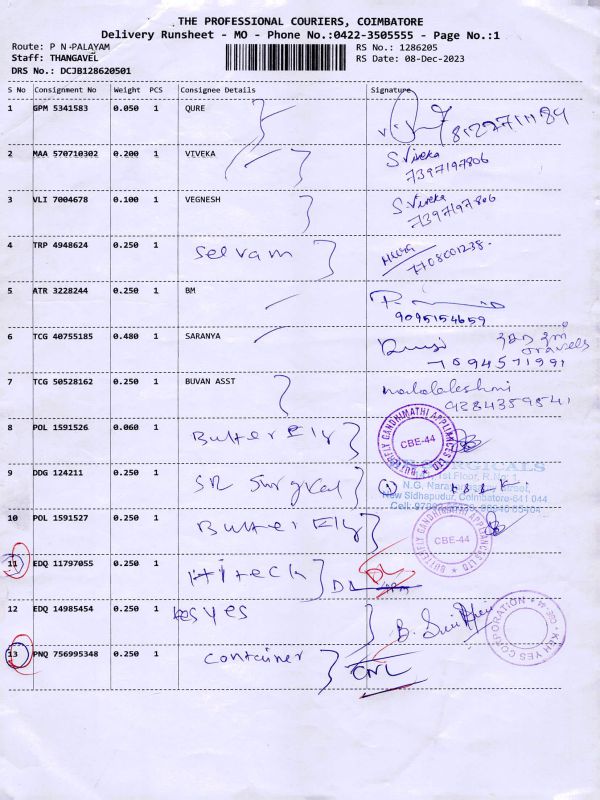 THE PROFESSIONAL COURIERS, COIMBATORE
Delivery Runsheet - MO - Phone No.:0422-3505555 - Page No.:1
Route: P N-PALAYAM RS No.: 1286205
Staff: THANGAVEL RS Date: 08-Dec-2023
DRS No.: DCJB128620501
S No Consignment No Weight PCS Consignee Details Signature
1 GPM 5341583 0.050 1 QURE
2 MAA 570710302 0.200 1 VIVEKA S Viveka
7397197806
3 VLI 7004678 0.100 1 VEGNESH S. Viveka
7397197806
4 TRP 4948624 0.250 1 Selvam
7708001238
5 ATR 3228244 0.250 1 BM
9095154659
6 TCG 40755185 0.480 1 SARANYA
travels
7094571991
7 TCG 50528162 0.250 1 BUVAN ASST
9284359541
8 POL 1591526 0.060 1 Butter Fly BUTTERFLY GANDHIMATHI APPLIANCES LTD CBE-44
9 DDG 124211 0.250 1 SR Surgical SURGICALS
1st Floor,
New Sidhapudur, Coimbatore-641 044
10 POL 1591527 0.250 1 Butter Fly BUTTERFLY GANDHIMATHI APPLIANCES LTD CBE-44
11 EDQ 11797055 0.250 1 Hiteck DL
12 EDQ 14985454 0.250 1 yes KAH YES CORPORATION CBE-44
13 PNQ 756995348 0.250 1 Container CNL